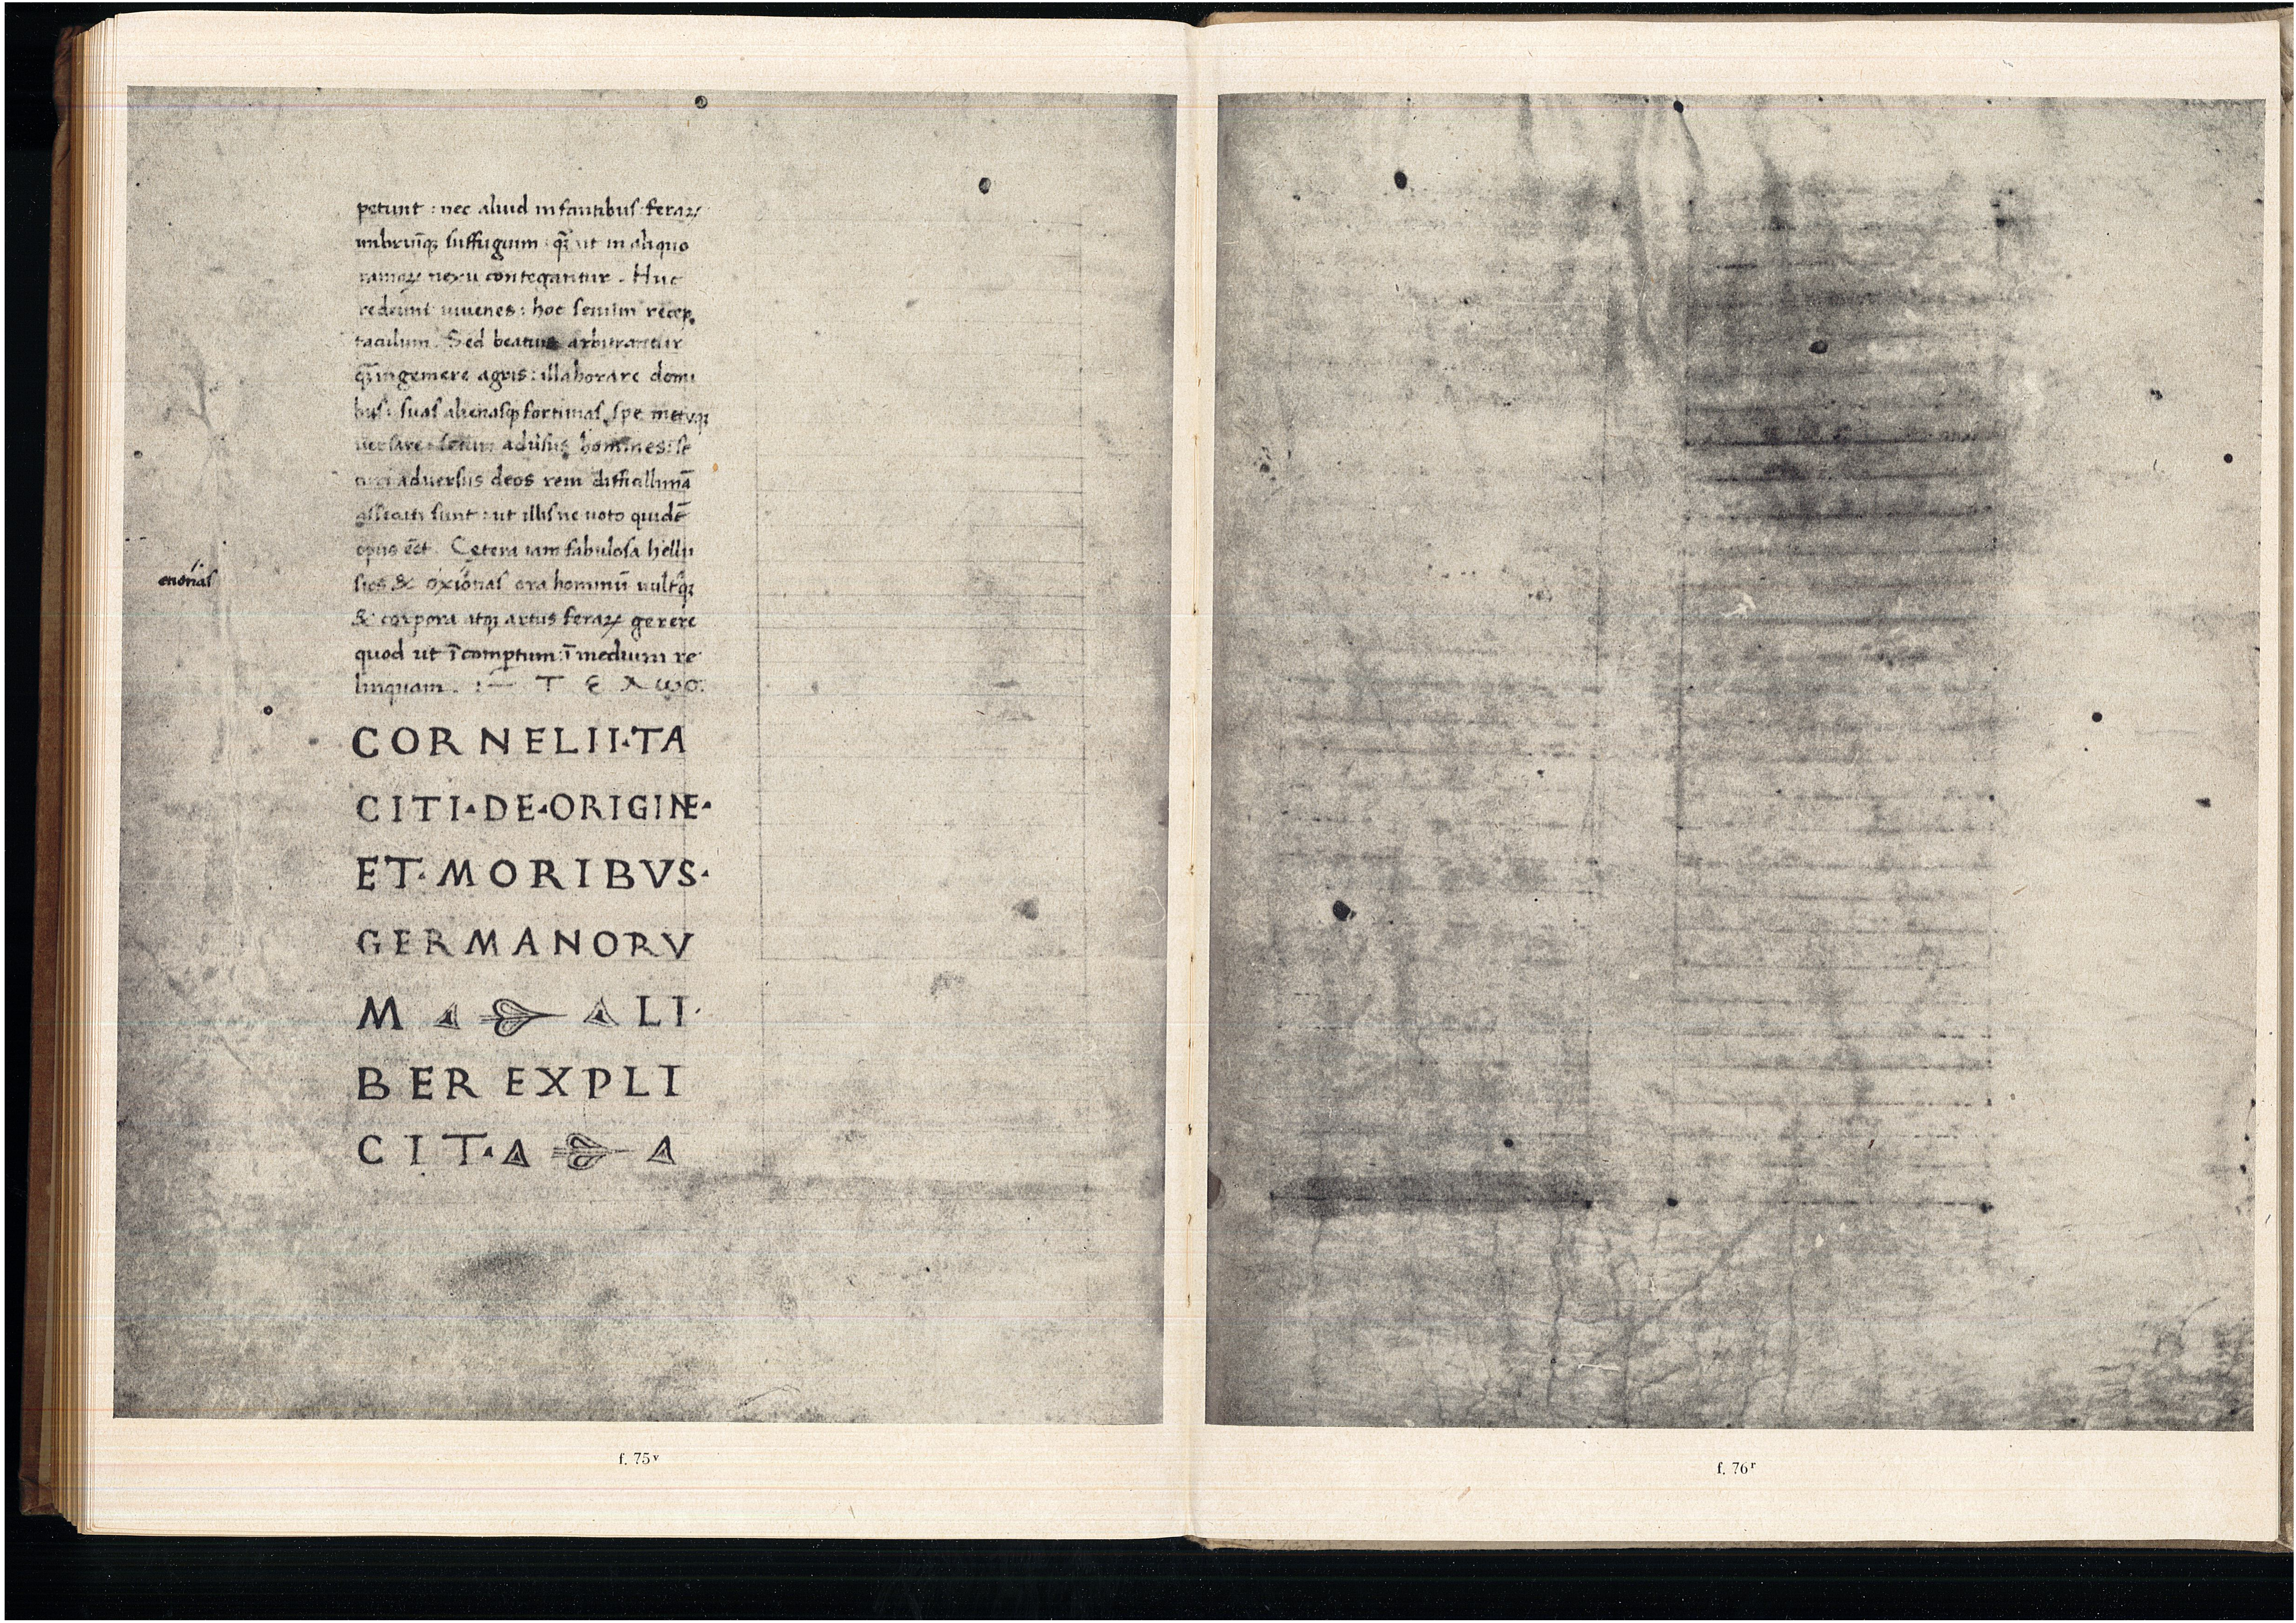 petunt : nec aliud infantibus feraꝝ
imbriũqꝫ suffugium : q̃ꝫ ut in aliquo
ramoꝝ nexu contegantur . Huc
redeunt iuuenes : hoc senum recep
taculum . Sed beatius arbitrantur
q̃ꝫ ingemere agris : illaborare domi
bus : suas alienasqꝫ fortunas spe metuqꝫ
uersare : securi aduersus homines : se
curi aduersus deos rem difficillimã
assecuti sunt : ut illis ne uoto quidẽ
opus eẽt . Cetera iam fabulosa hellu
sios & oxionas ora hominũ uultusqꝫ
& corpora atqꝫ artus feraꝝ gerere
quod ut ĩcompertum : ĩ medium re
linquam . : — Τ Ε Λ ω ο :
CORNELII·TA
CITI·DE·ORIGINE·
ET·MORIBVS·
GERMANORV
M LI·
BER EXPLI
CIT·
f. 75ᵛ
f. 76ʳ